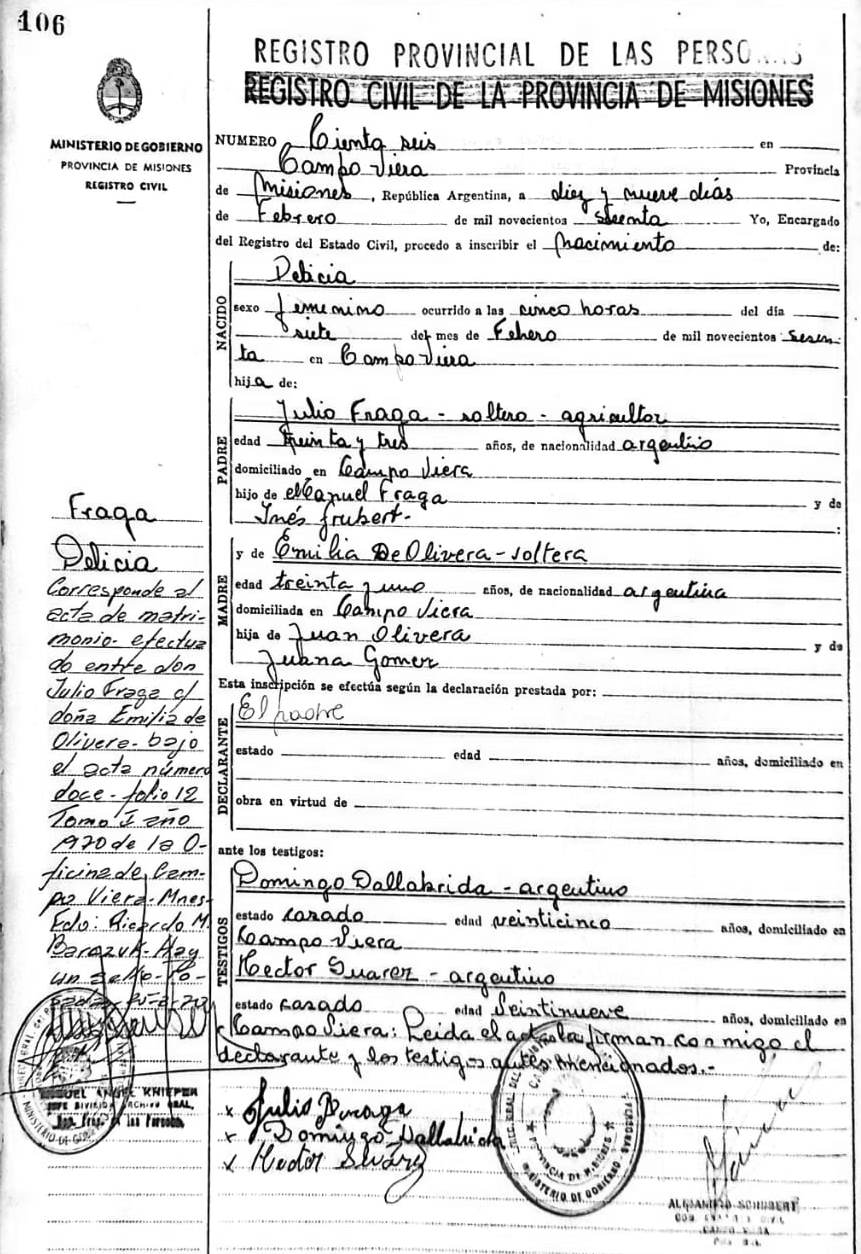 106
REGISTRO PROVINCIAL DE LAS
REGISTRO CIVIL DE LA PROVINCIA DE MISIONES
MINISTERIO DE GOBIERNO
PROVINCIA DE MISIONES
REGISTRO CIVIL
NUMERO Ciento seis en
Campo Viera Provincia
de Misiones, República Argentina, a diez y nueve días
de Febrero de mil novecientos Yo, Encargado
del Registro del Estado Civil, procedo a inscribir el Nacimiento de:
NACIDO
Delicia
sexo femenino ocurrido a las cinco horas del día
siete del mes de Febrero de mil novecientos sesen-
ta en Campo Viera
hija de:
PADRE
Julio Fraga - soltero - agricultor
edad treinta y tres años, de nacionalidad argentino
domiciliado en Campo Viera
hijo de Manuel Fraga y de
Inés Grubert- :
MADRE
y de Emilia De Olivera - soltera
edad treinta y uno años, de nacionalidad argentina
domiciliada en Campo Viera
hija de Juan Olivera y de
Juana Gomez
Esta inscripción se efectúa según la declaración prestada por:
DECLARANTE
El padre
estado edad años, domiciliado en
obra en virtud de
ante los testigos:
TESTIGOS
Domingo Dallabrida - argentino
estado casado edad veinticinco años, domiciliado en
Campo Viera
Hector Suarez - argentino
estado casado edad Veintinueve años, domiciliado en
Campo Viera: Leida el acta la firman conmigo el
declarante y los testigos antes mencionados.-
x Julio Fraga
x Domingo Dallabrida
x Hector Suárez
Fraga
Delicia
Corresponde al
acta de matri-
monio- efectua
do entre don
Julio Fraga c/
doña Emilia de
Olivera- bajo
el acta número
doce- folio 12
Tomo I año
1970 de la O-
ficina de Cam-
po Viera- Mnes-
Fdo: Ricardo M.
Barazuk- Hay
un sello- Po-
sadas
MIGUEL ANGEL KNIEPER
JEFE DIVISION ARCHIVO GRAL.
Reg. Prov. de las Personas
PROVINCIA DE MISIONES
MINISTERIO DE GOBIERNO
ALEJANDRO SCHUBERT
CAMPO VIERA